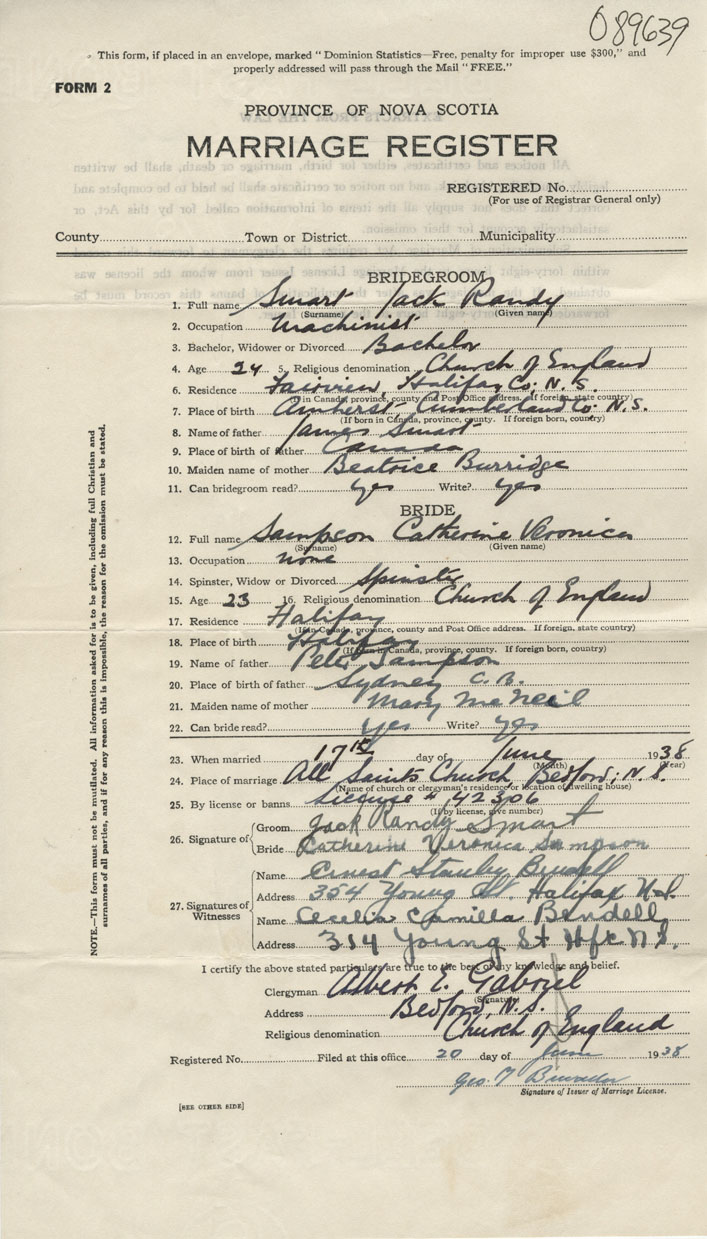 089639
This form, if placed in an envelope, marked "Dominion Statistics—Free, penalty for improper use $300," and
properly addressed will pass through the Mail "FREE."
FORM 2
PROVINCE OF NOVA SCOTIA
MARRIAGE REGISTER
REGISTERED No.
(For use of Registrar General only)
County Town or District Municipality
BRIDEGROOM
1. Full name Smart Jack Randy
(Surname) (Given name)
2. Occupation Machinist
3. Bachelor, Widower or Divorced Bachelor
4. Age 24 5. Religious denomination Church of England
6. Residence Fairview, Halifax Co. N.S.
(If in Canada, province, county and Post Office address. If foreign, state country)
7. Place of birth Amherst, Cumberland Co. N.S.
(If born in Canada, province, county. If foreign born, country)
8. Name of father James Smart
9. Place of birth of father Canada
10. Maiden name of mother Beatrice Burridge
11. Can bridegroom read? Yes Write? Yes
BRIDE
12. Full name Sampson Catherine Veronica
(Surname) (Given name)
13. Occupation none
14. Spinster, Widow or Divorced Spinster
15. Age 23 16. Religious denomination Church of England
17. Residence Halifax
(If in Canada, province, county and Post Office address. If foreign, state country)
18. Place of birth Halifax
(If born in Canada, province, county. If foreign born, country)
19. Name of father Peter Sampson
20. Place of birth of father Sydney C.B.
21. Maiden name of mother Mary McNeil
22. Can bride read? Yes Write? Yes
23. When married 17th day of June 1938
(Month) (Year)
24. Place of marriage All Saints Church, Bedford, N.S.
(Name of church or clergyman's residence or location of dwelling house)
25. By license or banns License # 42306
(If by license, give number)
26. Signature of Groom Jack Randy Smart
Bride Catherine Veronica Sampson
27. Signatures of Witnesses
Name Ernest Stanley Bendell
Address 354 Young St. Halifax N.S.
Name Cecelia Camilla Bendell
Address 314 Young St Hfx N.S.
I certify the above stated particulars are true to the best of my knowledge and belief.
Clergyman Albert E. Gabriel
(Signature)
Address Bedford, N.S.
Religious denomination Church of England
Registered No. Filed at this office 20 day of June 1938
Geo. T
Signature of Issuer of Marriage License.
[SEE OTHER SIDE]
NOTE.—This form must not be mutilated. All information asked for is to be given, including full Christian and
surnames of all parties, and if for any reason this is impossible, the reason for the omission must be stated.